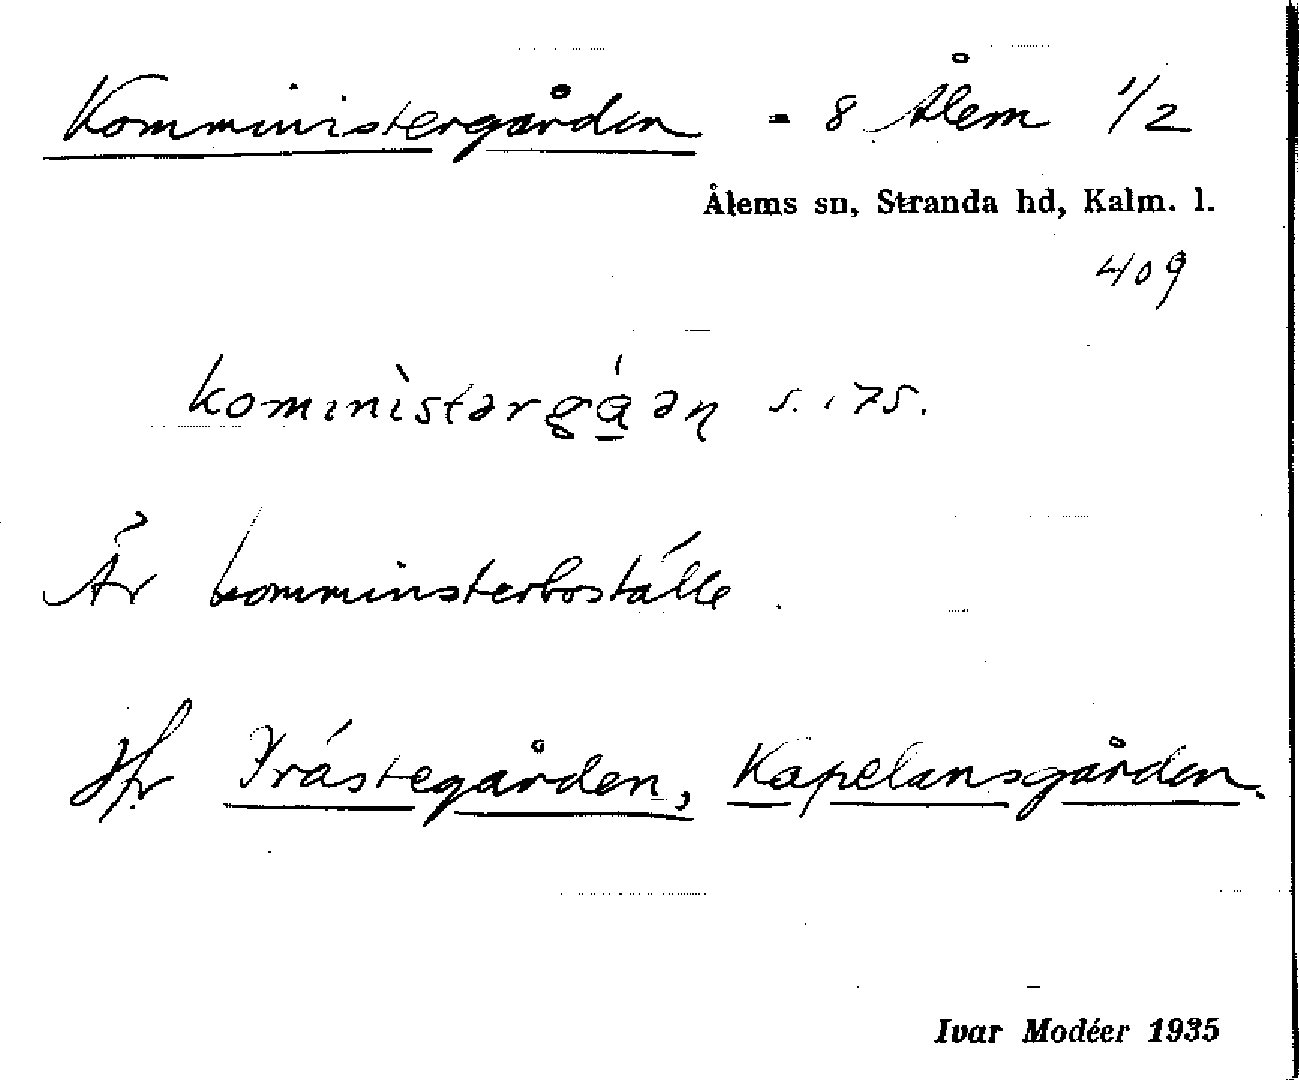 Komministergården = 8 Ålem 1/2
Ålems sn, Stranda hd, Kalm. l.
409
Är komministerboställe.
Jfr Prästegården, Kapelansgården.
Ivar Modéer 1935